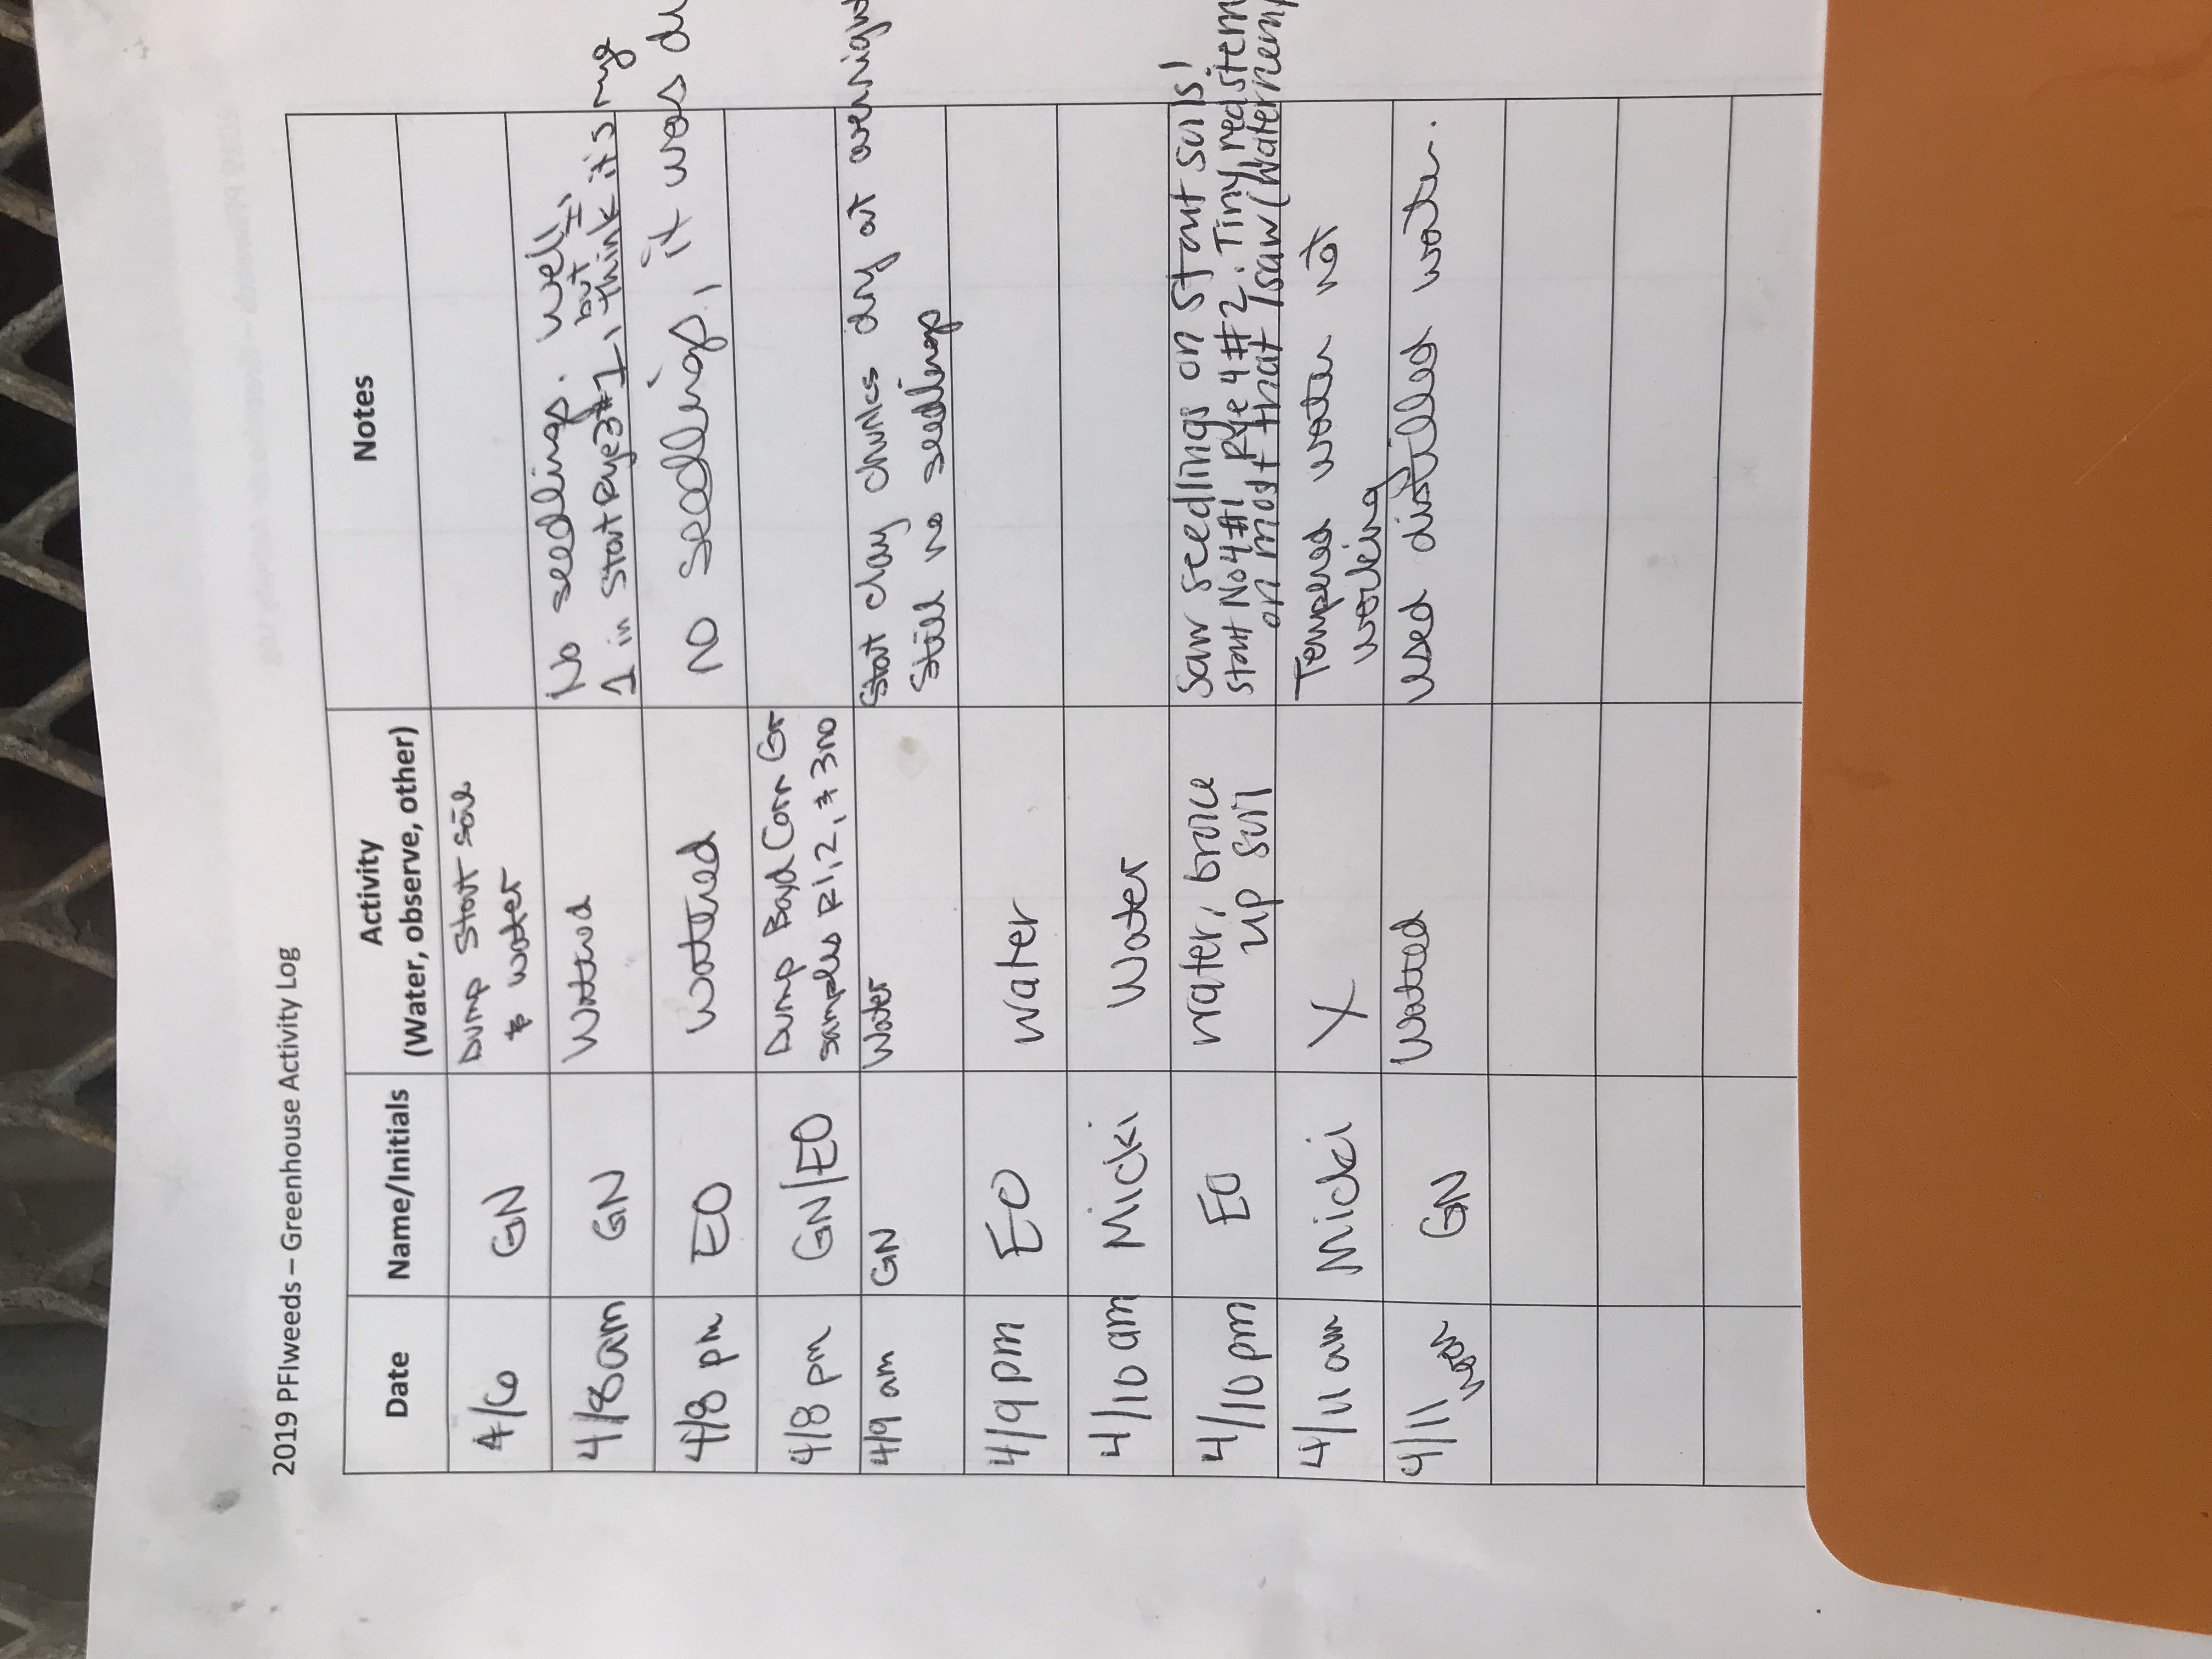 2019 PFIweeds – Greenhouse Activity Log
Date
Name/Initials
Activity
(Water, observe, other)
Notes
4/6
GN
Dump Stout soil
& water
4/8 am
GN
Watered
No seedlings. Well,
1 in Stout Rye3#1, but I think it's rye
4/8 pm
EO
Watered
no seedlings, it was
4/8 pm
GN/EO
Dump Boyd Corn Gr
samples R1,2, & 3no
4/9 am
GN
Water
Stout clay chunks dry at overnight
Still no seedlings
4/9 pm
EO
water
4/10 am
Micki
Water
4/10 pm
EO
water, broke
up soil
Saw seedlings on Stout soils!
Stout No4#1, Rye 4#2. Tiny, red stem
on most that I saw (
4/11 am
Micki
X
Tempered water not
working
4/11
noon
GN
Watted
Used distilled water.